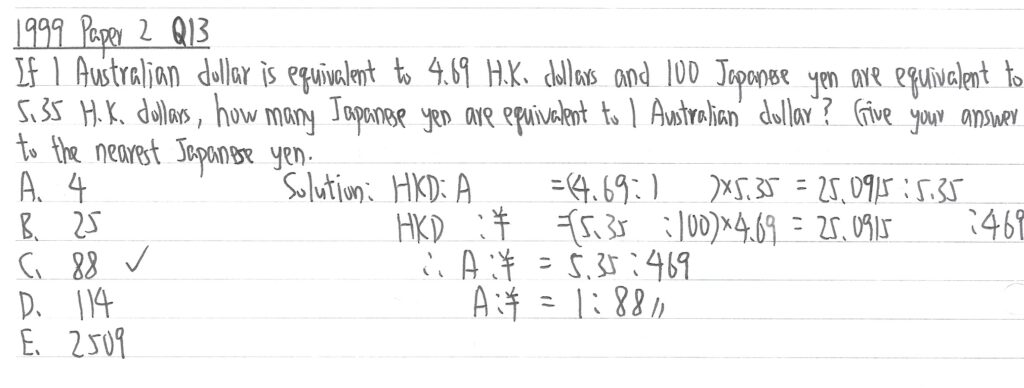 1999 Paper 2 Q13
If 1 Australian dollar is equivalent to 4.69 H.K. dollars and 100 Japanese yen are equivalent to
5.35 H.K. dollars, how many Japanese yen are equivalent to 1 Australian dollar? Give your answer
to the nearest Japanese yen.
A. 4 Solution: HKD: A =(4.69:1 )×5.35 = 25.0915 : 5.35
B. 25 HKD :¥ =(5.35 :100)×4.69 = 25.0915 :469
C. 88 ✓ ∴ A:¥ = 5.35:469
D. 114 A:¥ = 1:88//
E. 2509